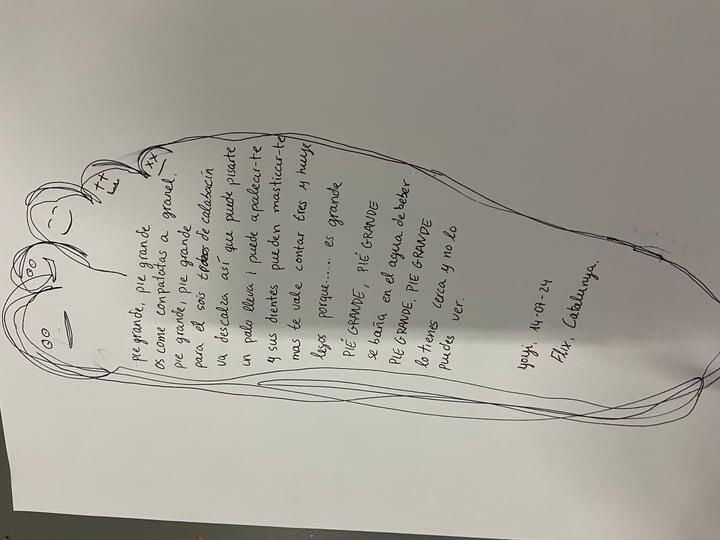 pie grande, pie grande
os come con patatas a granel.
pie grande, pie grande
para el sois trozos de calabacín
va descalza así que puede pisarte
un palo lleva i puede apalear-te
y sus dientes pueden masticar-te
mas te vale contar tres y huye
lejos porque..... es grande
PIÉ GRANDE, PIÉ GRANDE
se baña en el agua de beber
PIE GRANDE, PIE GRANDE
lo tienes cerca y no lo
puedes ver.
14-07-24
Flix, Catalunya.